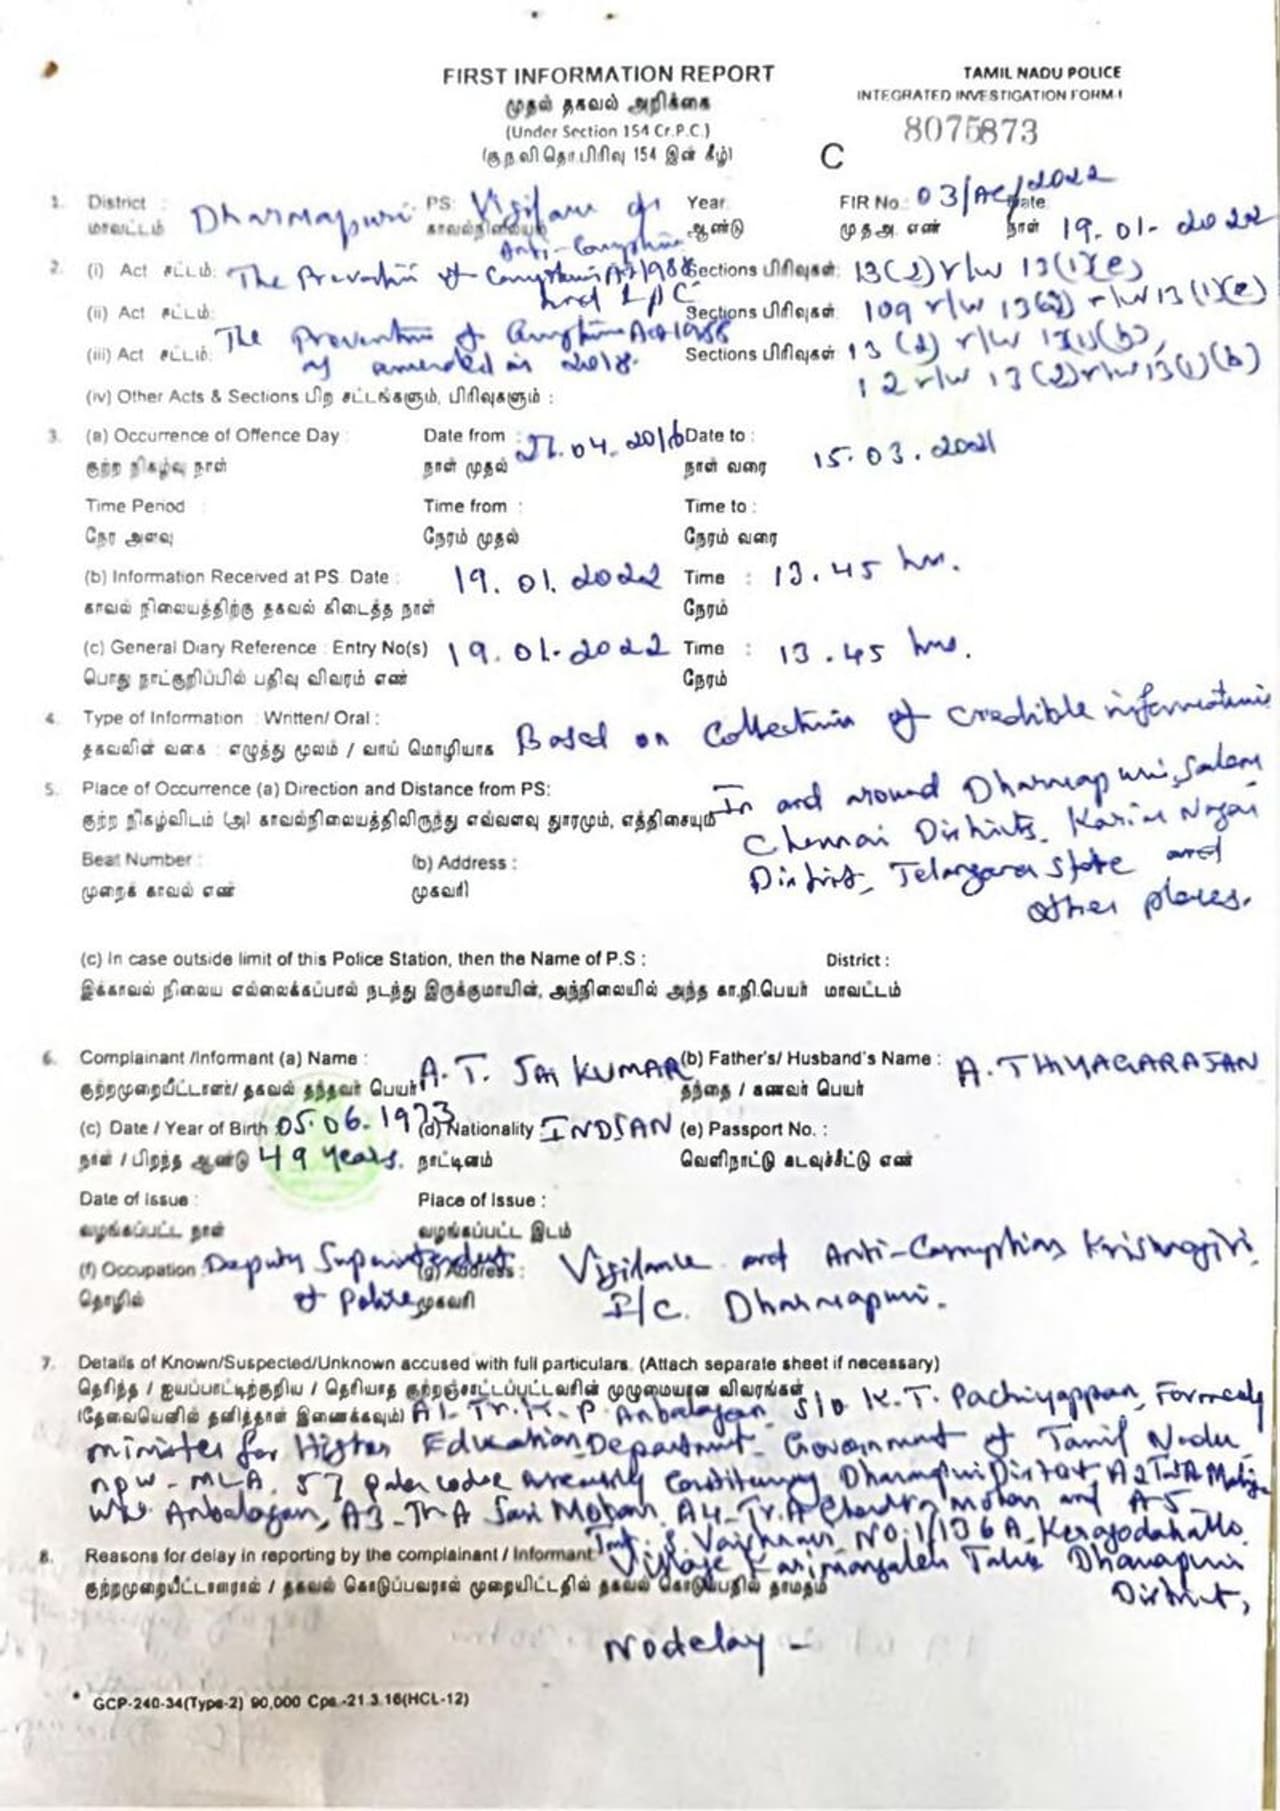 FIRST INFORMATION REPORT
முதல் தகவல் அறிக்கை
(Under Section 154 Cr.P.C.)
(கு.ந.வி.தொ.பிரிவு 154 இன் கீழ்)
TAMIL NADU POLICE
INTEGRATED INVESTIGATION FORM-I
8075873
C
1. District : Dharmapuri PS: Vigilance & Year FIR No.: 03/AC/2022 Date
மாவட்டம் காவல்நிலையம் Anti-Corruption ஆண்டு மு.த.அ. எண் நாள் 19.01.2022
2. (i) Act சட்டம்: The Prevention of Corruption Act 1988 Sections பிரிவுகள்: 13(2) r/w 13(1)(e)
and IPC
(ii) Act சட்டம்: Sections பிரிவுகள் 109 r/w 13(2) r/w 13(1)(e)
The Prevention of Corruption Act 1988
(iii) Act சட்டம்: as amended in 2018. Sections பிரிவுகள் 13(2) r/w 13(1)(b),
12 r/w 13(2) r/w 13(1)(b)
(iv) Other Acts & Sections பிற சட்டங்களும், பிரிவுகளும் :
3. (a) Occurrence of Offence Day : Date from : 27.04.2016 Date to : 15.03.2021
குற்ற நிகழ்வு நாள் நாள் முதல் நாள் வரை
Time Period : Time from : Time to :
நேர அளவு நேரம் முதல் நேரம் வரை
(b) Information Received at PS. Date : 19.01.2022 Time : 13.45 hrs.
காவல் நிலையத்திற்கு தகவல் கிடைத்த நாள் நேரம்
(c) General Diary Reference : Entry No(s) 19.01.2022 Time : 13.45 hrs.
பொது நாட்குறிப்பில் பதிவு விவரம் எண் நேரம்
4. Type of Information : Written/ Oral :
தகவலின் வகை : எழுத்து மூலம் / வாய் மொழியாக Based on Collection of credible informations
5. Place of Occurrence (a) Direction and Distance from PS: In and around Dharmapuri, Salem
குற்ற நிகழ்விடம் (அ) காவல்நிலையத்திலிருந்து எவ்வளவு தூரமும், எத்திசையும் Chennai Districts. Karim Nagar
Beat Number : (b) Address : District, Telangana State and
முறைக் காவல் எண் முகவரி other places.
(c) In case outside limit of this Police Station, then the Name of P.S : District :
இக்காவல் நிலைய எல்லைக்கப்பால் நடந்து இருக்குமாயின், அந்நிலையில் அந்த கா.நி.பெயர் மாவட்டம்
6. Complainant /Informant (a) Name : A.T. SAI KUMAR (b) Father's/ Husband's Name : A. THIYAGARAJAN
குற்றமுறையீட்டாளர்/ தகவல் தந்தவர் பெயர் தந்தை / கணவர் பெயர்
(c) Date / Year of Birth 05.06.1973 (d) Nationality : INDIAN (e) Passport No. :
நாள் / பிறந்த ஆண்டு 49 years. நாட்டினம் வெளிநாட்டு கடவுச்சீட்டு எண்
Date of Issue : Place of Issue :
வழங்கப்பட்ட நாள் வழங்கப்பட்ட இடம்
(f) Occupation : Deputy Superintendent (g) Address : Vigilance and Anti-Corruption Krishnagiri
தொழில் of Police முகவரி I/c. Dharmapuri.
7. Details of Known/Suspected/Unknown accused with full particulars. (Attach separate sheet if necessary)
தெரிந்த / ஐயப்பாட்டிற்குரிய / தெரியாத குற்றஞ்சாட்டப்பட்டவரின் முழுமையான விவரங்கள்
(தேவையெனில் தனித்தாள் இணைக்கவும்) A1-Tr.K.P. Anbalagan S/o K.T. Pachiyappan, Formerly
minister for Higher Education Department Government of Tamil Nadu
now-MLA, 57 Assembly Constituency Dharmapuri District, A2
Anbalagan, A3- Sasi Mohan, A4-Tr.A Chandra mohan and A5
Tmt. S. Vaishnavi No:1/136A, Keragodahalli
8. Reasons for delay in reporting by the complainant / Informant Village Karimangalam Taluk Dharmapuri
குற்றமுறையீட்டாளரால் / தகவல் கொடுப்பவரால் முறையிட்டதில் தகவல் கொடுப்பதில் தாமதம் District,
No delay -
* GCP-240-34(Type-2) 90,000 Cps.-21.3.16(HCL-12)